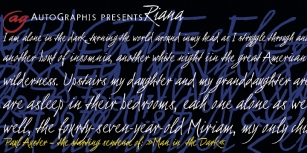 ag AUTOGRAPHIS PRESENTS Riana
I am alone in the dark, turning the world around in my head as I struggle through an
another bout of insomnia, another white night in the great American
wilderness. Upstairs my daughter and my granddaughter ar
are asleep in their bedrooms, each one alone as we
well, the fourty-seven-year old Miriam, my only ch
Paul Auster – the starting sentence of: »Man in the Dark«